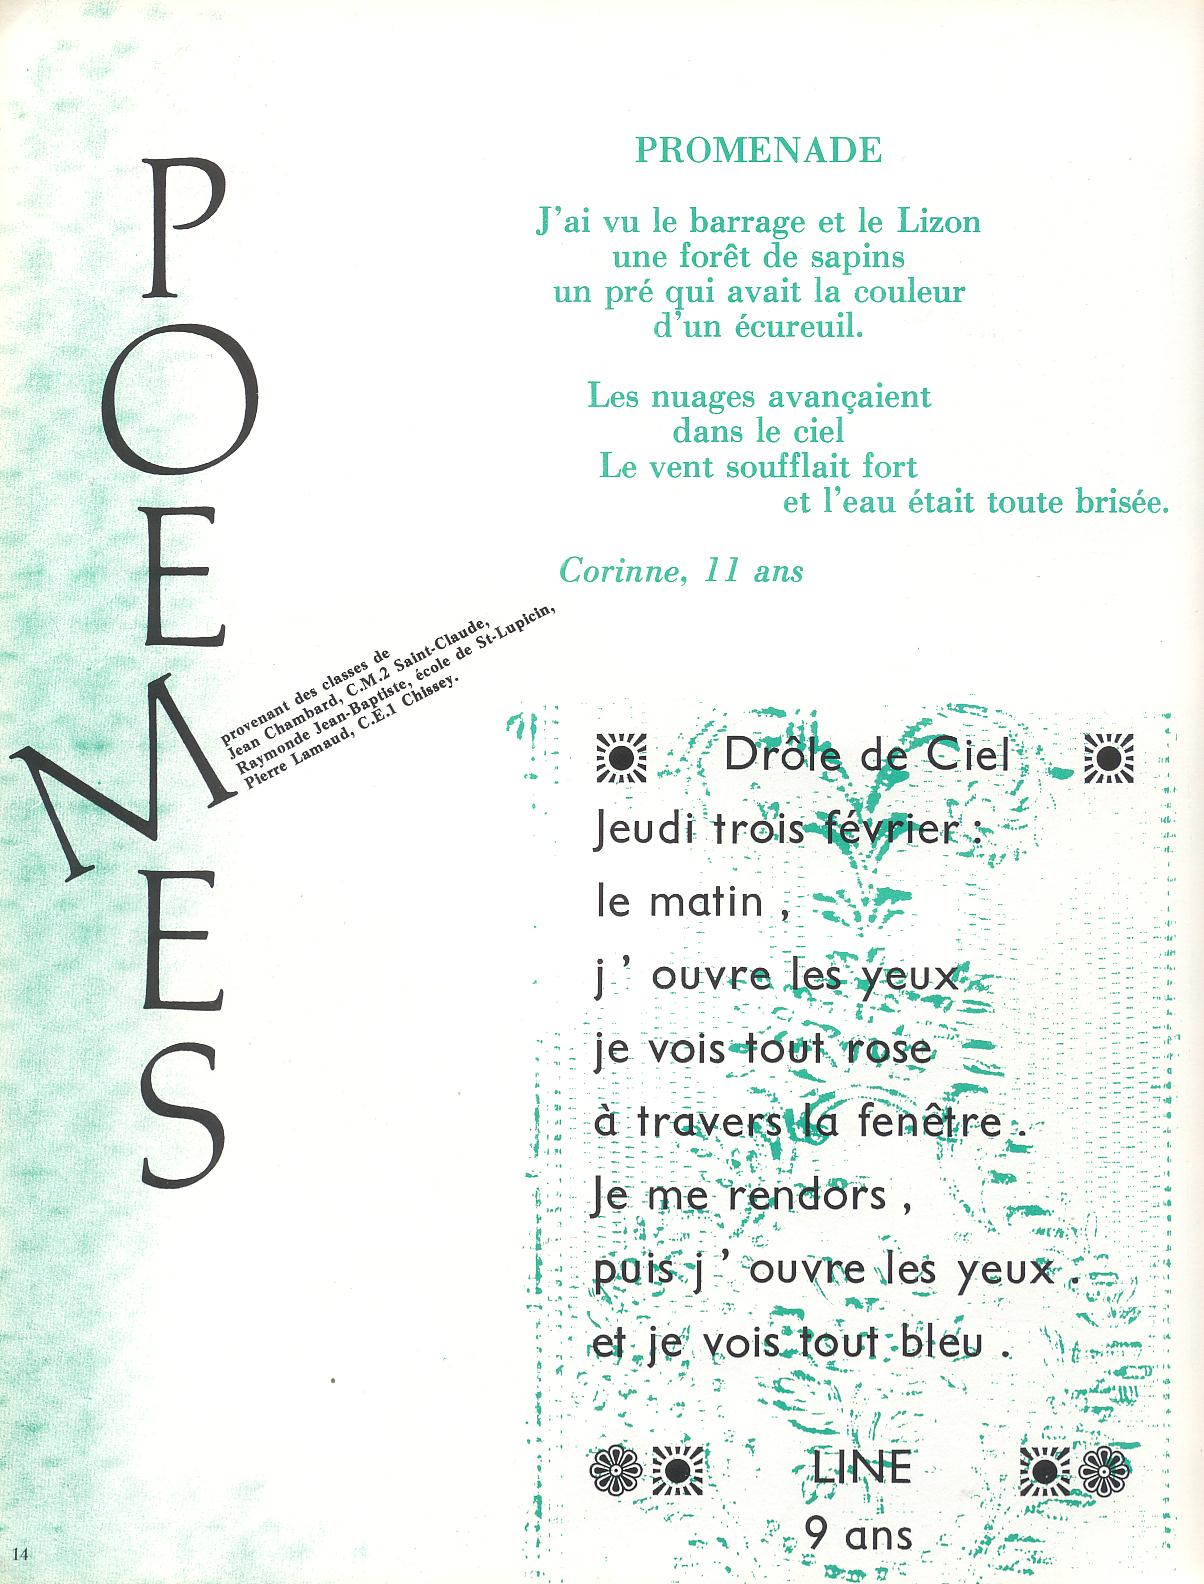 POEMES
provenant des classes de
Jean Chambard, C.M.2 Saint-Claude,
Raymonde Jean-Baptiste, école de St-Lupicin,
Pierre Lamaud, C.E.1 Chissey.
PROMENADE
J'ai vu le barrage et le Lizon
une forêt de sapins
un pré qui avait la couleur
d'un écureuil.
Les nuages avançaient
dans le ciel
Le vent soufflait fort
et l'eau était toute brisée.
Corinne, 11 ans
Drôle de Ciel
Jeudi trois février :
le matin ,
j ' ouvre les yeux
je vois tout rose
à travers la fenêtre .
Je me rendors ,
puis j ' ouvre les yeux .
et je vois tout bleu .
LINE
9 ans
14